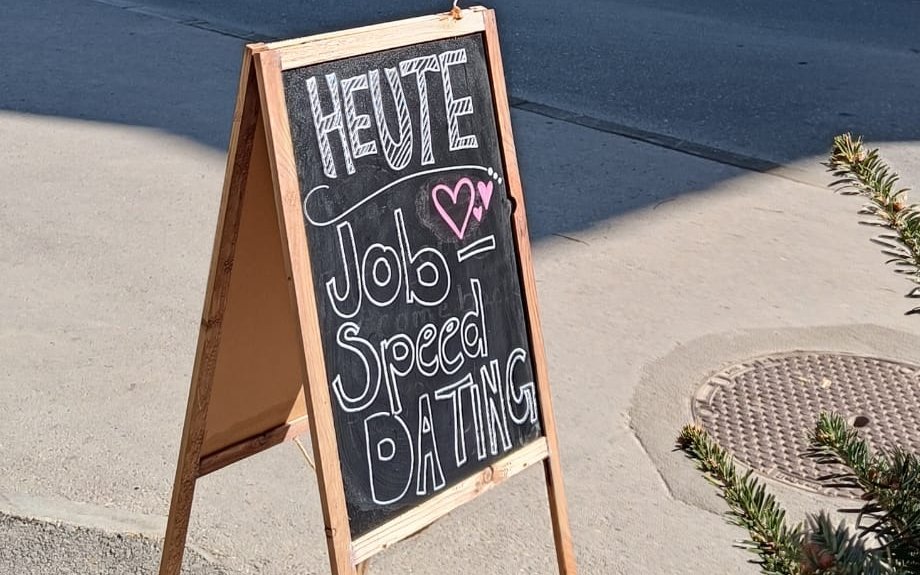 HEUTE
Job -
Speed
DATING